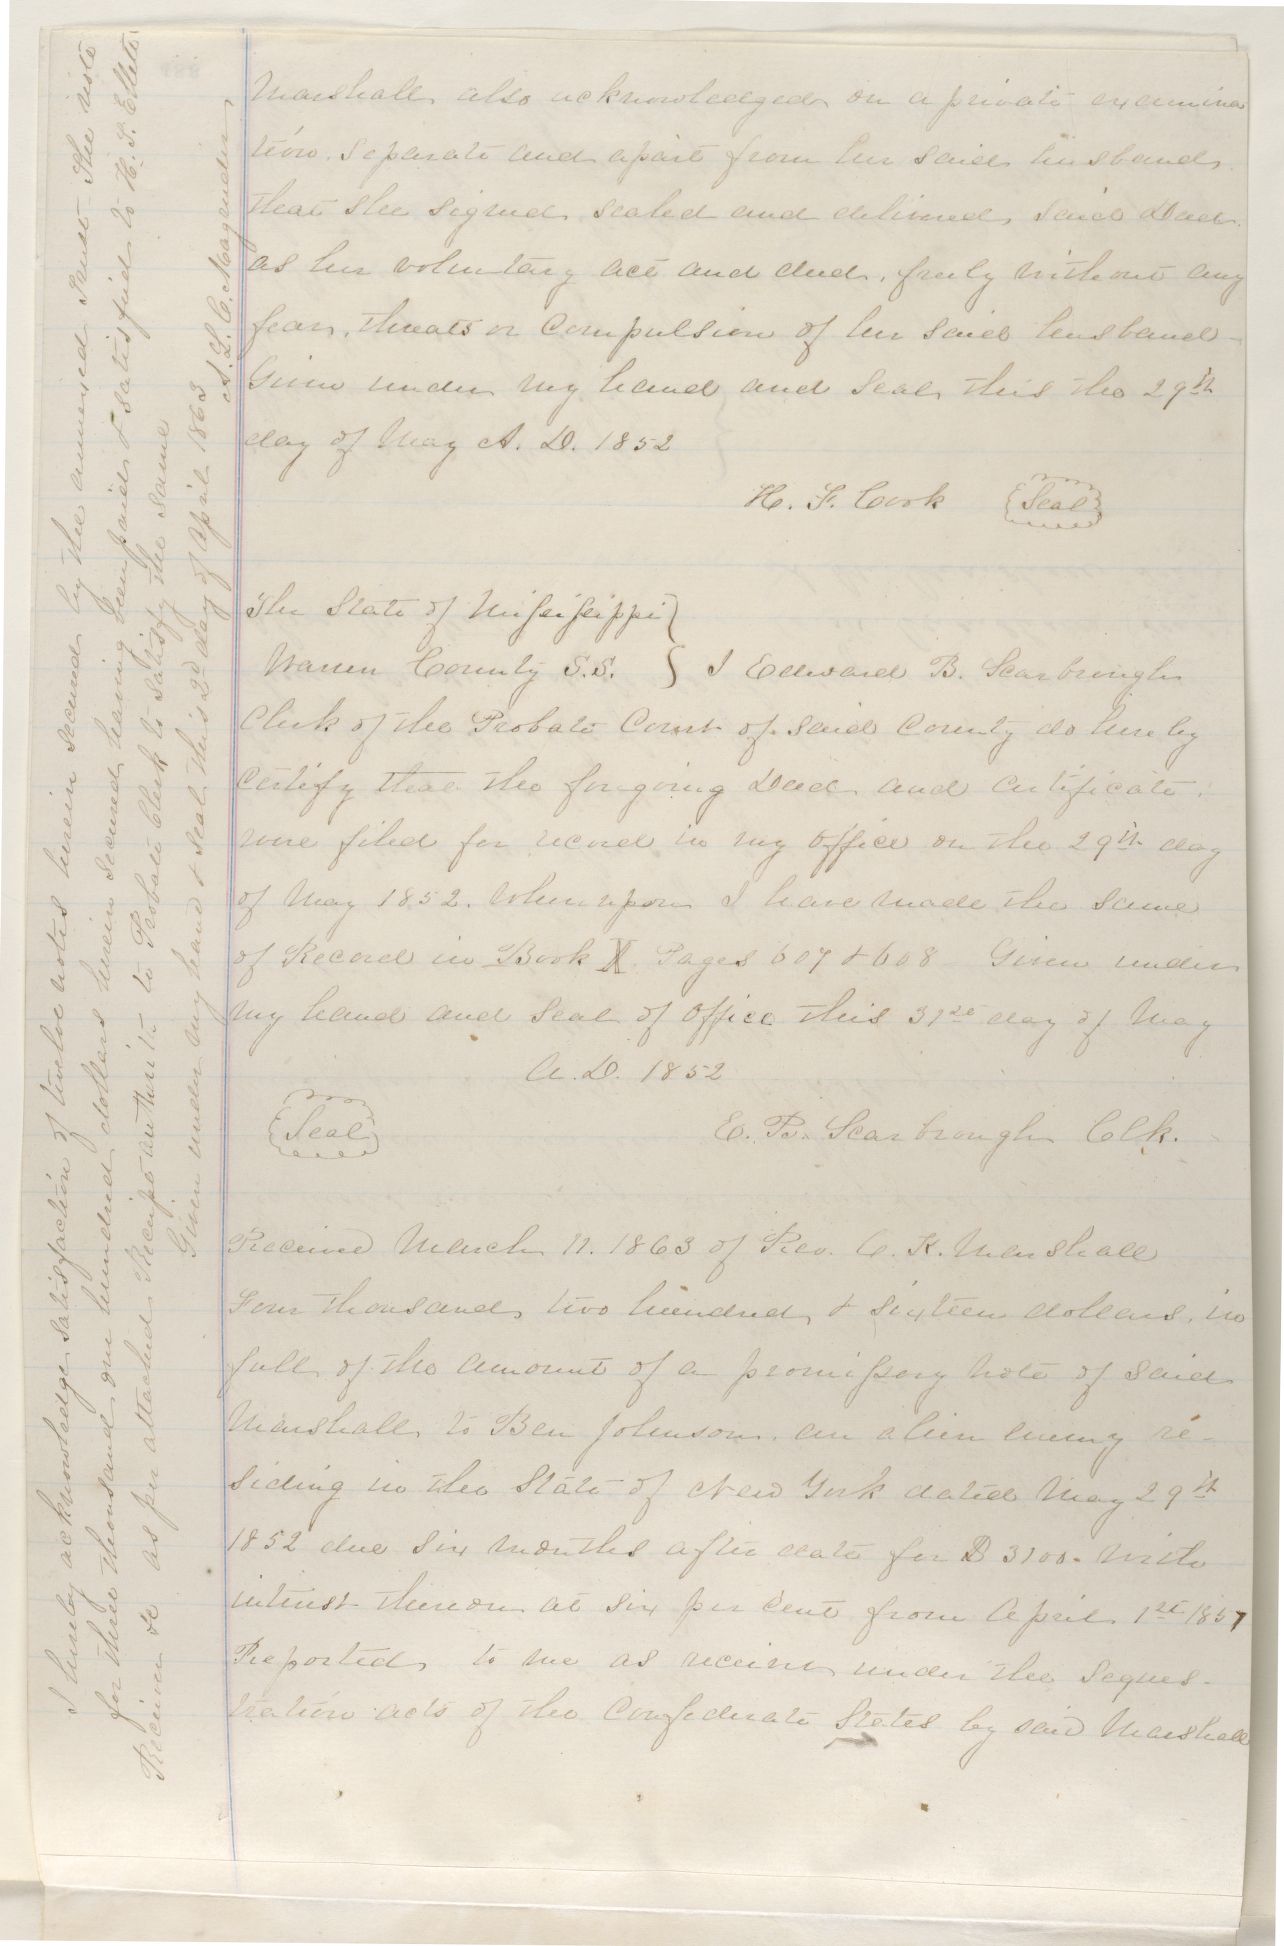 Marshall also acknowledged on a private examina
tion. Separate and apart from her said husband
that she signed sealed and delivered, said Deed
as her voluntary act and deed, freely without any
fear, threats or Compulsion of her said husband -
Given under my hand and Seal, this the 29th
day of May A. D. 1852
H. F. Cook Seal
The State of Mississippi }
Warren County S.S. } I Edward B. Scarbrough
Clerk of the Probate Court of said County do hereby
Certify that the forgoing Deed and certificate
were filed for record in my office on the 29th day
of May 1852. Whereupon I have made the same
of Record in Book X Pages 607 & 608 Given under
my hand and seal of office this 31st day of May
A. D. 1852
Seal E. B. Scarbrough Clk.
Received March 11. 1863 of Rev. C. K. Marshall
Four thousand, two hundred, & sixteen dollars, in
full, of the amount of a promissory note of said
Marshall, to Ben Johnson, an alien enemy re-
siding in the State of New York dated May 29th
1852 due six months after date for $ 3100 - with
interest thereon at six per cent from April 1st 1857
Reported, to me as receiver under the Seques-
tration acts of the Confederate States by said Marshall
I hereby acknowledge satisfaction of twelve notes herein secured by the annexed Trust - The note
for three thousand one hundred dollars herein secured having been paid & satisfied to H. T. Ellett.
Receiver &c as per attached Receipt authority to Probate Clerk to satisfy the same
Given under my hand & seal this 2d day of April 1863
A. L. C. Magruder